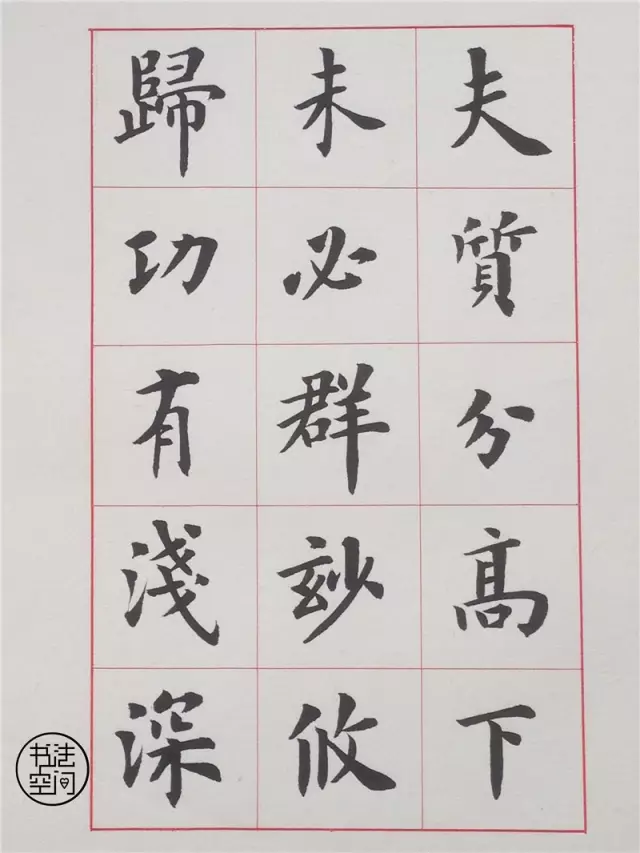 夫質分高下
未必群玅攸
歸功有淺深
书法
空间